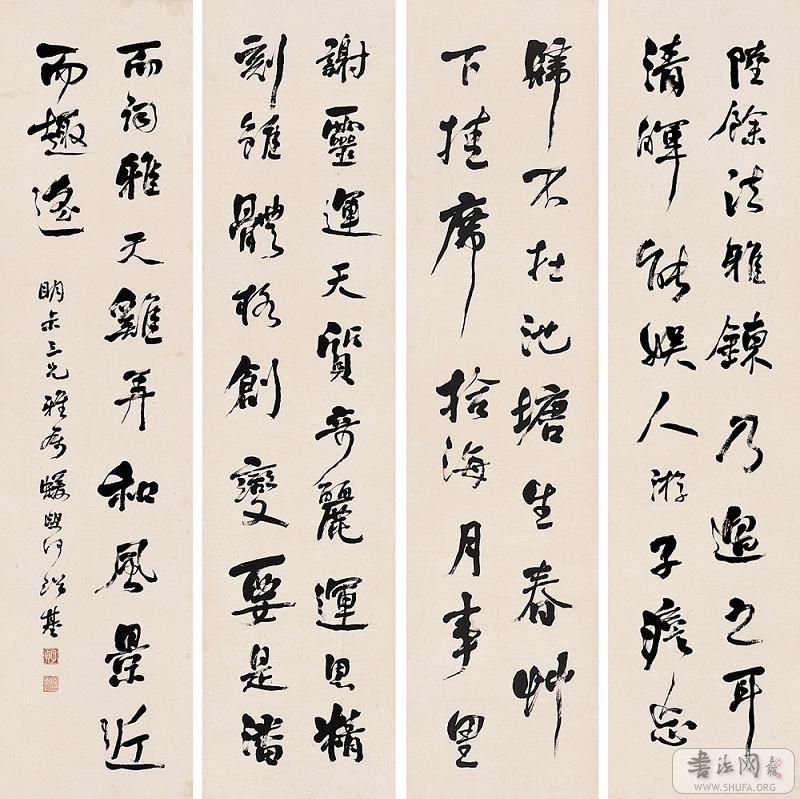 陸餘法雅鍊乃過之耳
清暉能娛人游子憺忘
歸不在池塘生春艸
下挂席拾海月事里
謝靈運天質奇麗運思精
刻雖體格創變要是潘
而詞雅天雞弄和風景近
而趣遙
明叔三兄雅屬 蝯叟何紹基
書法网
WWW.SHUFA.ORG